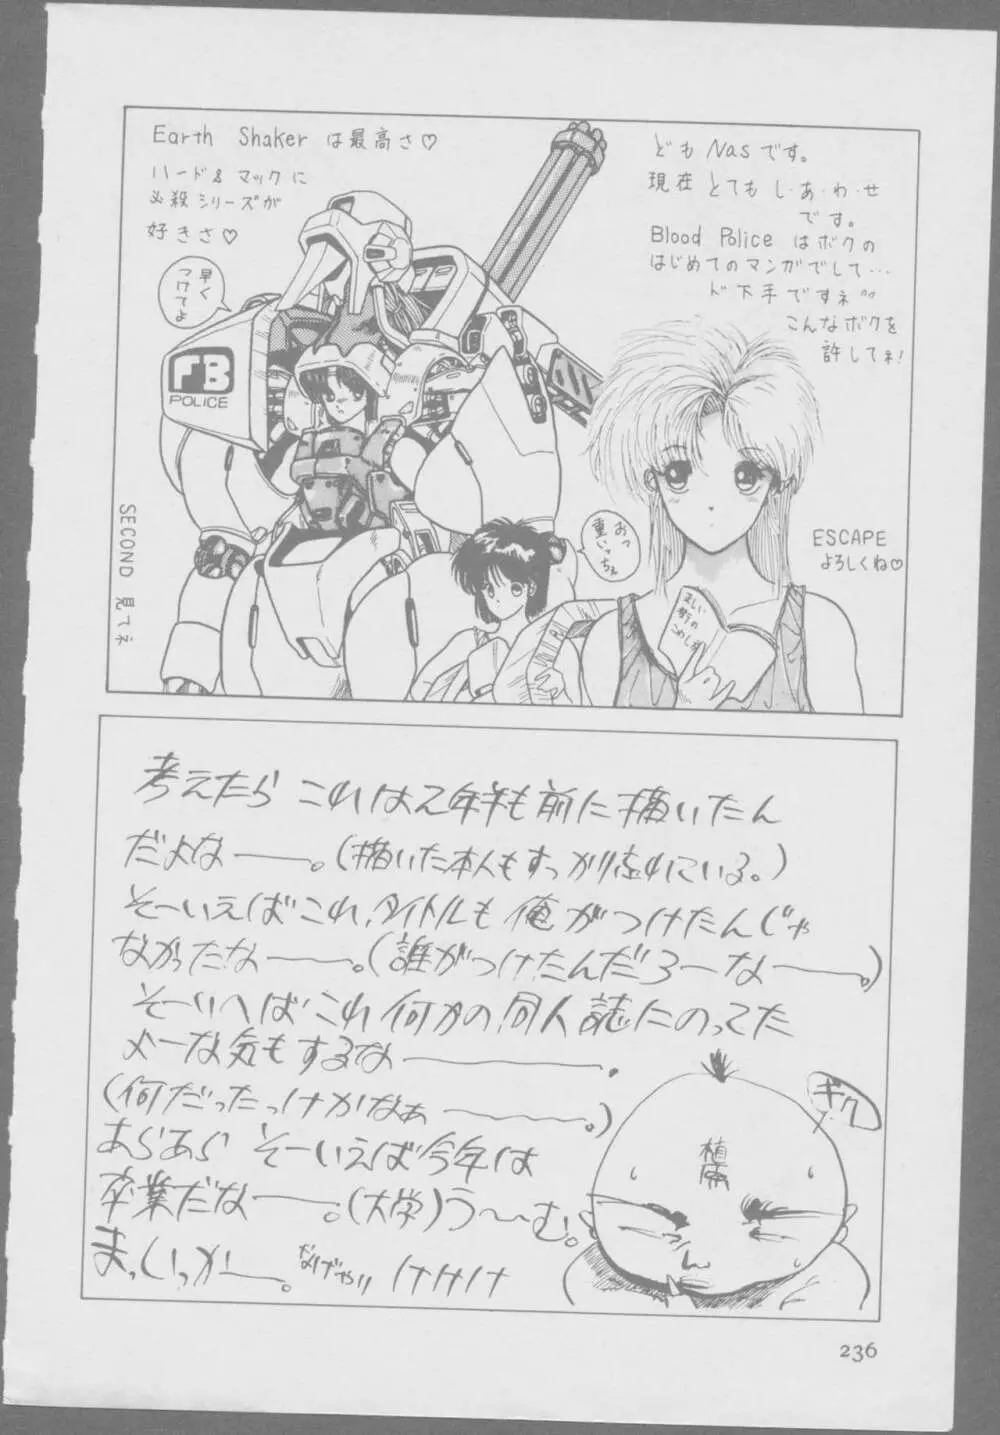 Earth Shaker は最高さ♡
ハード&マックに
必殺シリーズが
好きさ♡
どもNasです。
現在 とても し・あ・わ・せ
です。
Blood Police はボクの
はじめてのマンガでして…
ド下手ですネ〃
こんなボクを
許してネ!
早く
つけてよ
FB
POLICE
SECOND 見てネ
おっ
重いっちゃ
正しい
街の
こわしオ
ESCAPE
よろしくね♡
考えたら これは2年半も前に描いたん
だよなー。(描いた本人もすっかり忘れている。)
そーいえばこれ、タイトルも俺がつけたんじゃ
なかったなー。(誰がつけたんだろーなー。)
そーいへばこれ何かの同人誌にのってた
よーな気もするなー.
(何だったっけかなぁー。)
あらあら そーいえば今年は
卒業だなー。(大学)う〜む。
まっいっかー。なげやり けけけ
ギク
236